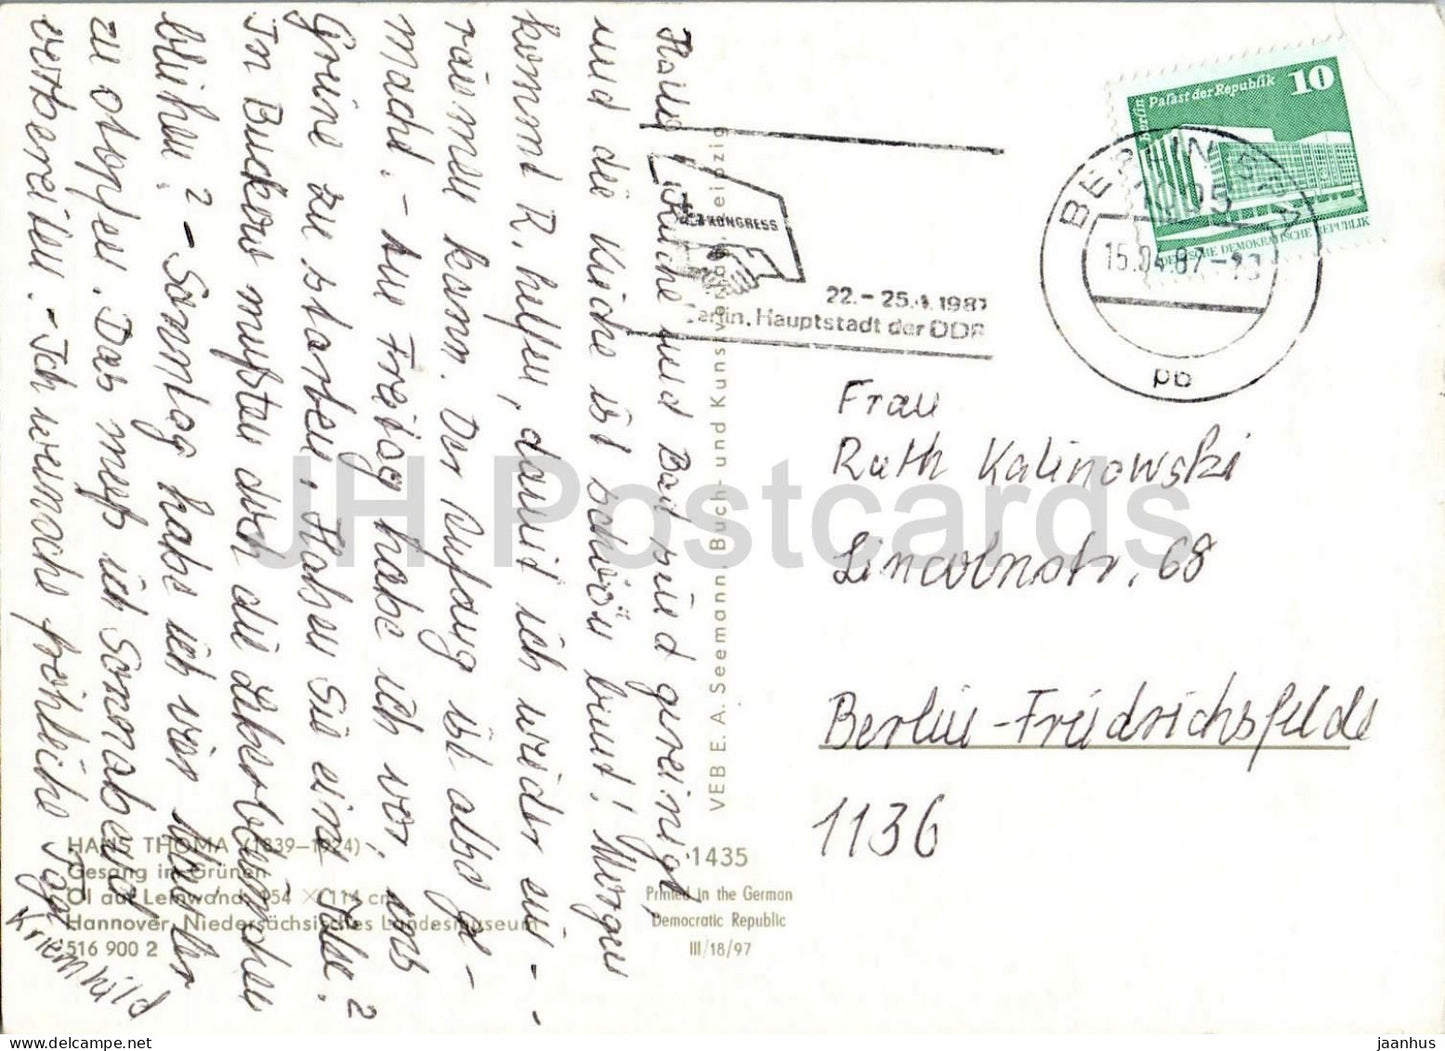 Hallo
Küche und Bad sind gereinigt,
und die Küche ist schön bunt! Morgen
kommt R. helfen, damit ich wieder ein-
räumen kann. Der Anfang ist also ge-
macht. - Am Freitag habe ich vor, ans
Grüne zu starten. Haben Sie eine Idee?
In Buckow mußten doch die Leberblümchen
blühen? - Sonntag habe ich vor
zu stopfen. Das muß ich Sonnabend
vorbereiten. - Ich wünsche fröhliche Tage
Kriemhild
VEB E. A. Seemann, Buch- und Kunstverlag, Leipzig
KONGRESS
22.-25.4.1987
Berlin, Hauptstadt der DDR
10
Palast der Republik
Berlin
DEUTSCHE DEMOKRATISCHE REPUBLIK
BERLIN
15.04.87
pb
Frau
Ruth Kalinowski
Lincolnstr. 68
Berlin-Friedrichsfelde
1136
HANS THOMA (1839–1924)
Gesang im Grünen
Öl auf Leinwand, 154 × 114 cm
Hannover, Niedersächsisches Landesmuseum
516 900 2
1435
Printed in the German
Democratic Republic
III/18/97
JH Postcards
www.delcampe.net
jaanhus